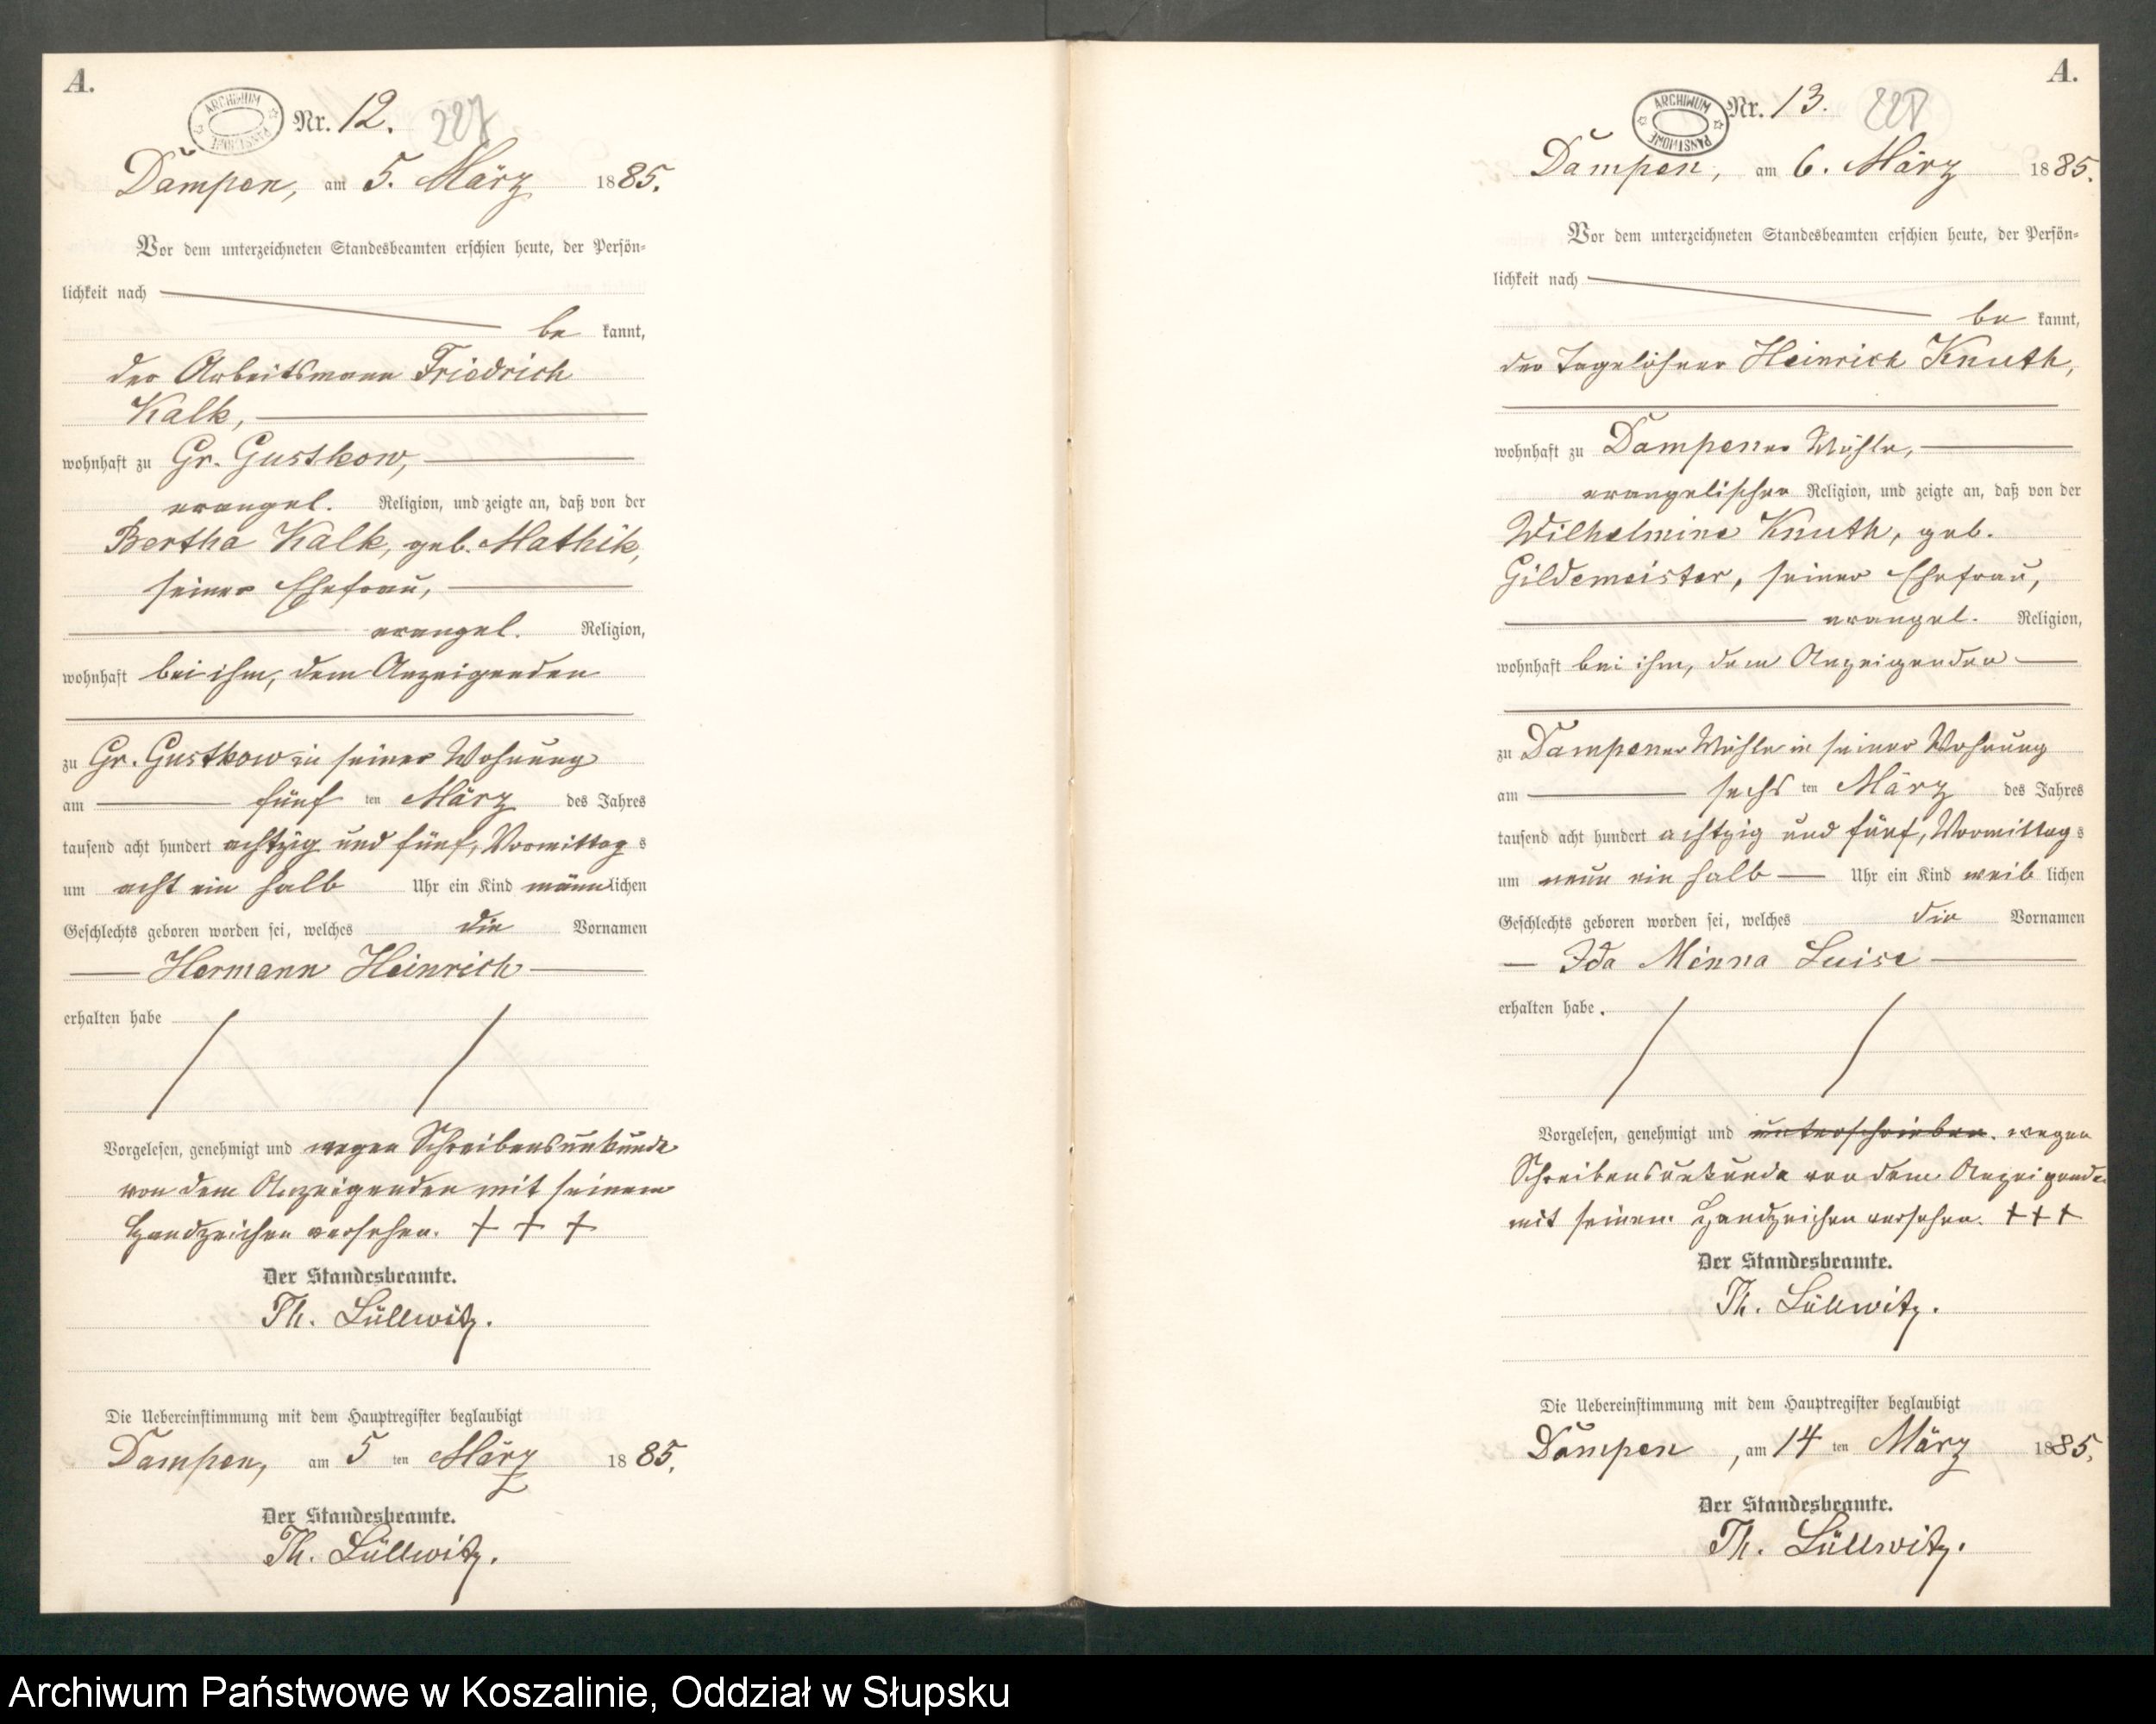 A.
ARCHIWUM PAŃSTWOWE
Nr. 12. 227
Dampen, am 5. März 1885.
Vor dem unterzeichneten Standesbeamten erschien heute, der Persön-
lichkeit nach
be kannt,
der Arbeitsmann Friedrich
Kalk,
wohnhaft zu Gr. Gustkow,
evangel. Religion, und zeigte an, daß von der
Bertha Kalk, geb. Mathik,
seiner Ehefrau,
evangel. Religion,
wohnhaft bei ihm, dem Anzeigenden
zu Gr. Gustkow in seiner Wohnung
am fünf ten März des Jahres
tausend acht hundert achtzig und fünf, Vormittag s
um acht ein halb Uhr ein Kind männlichen
Geschlechts geboren worden sei, welches die Vornamen
Hermann Heinrich
erhalten habe
Vorgelesen, genehmigt und wegen Schreibensunkunde
von dem Anzeigenden mit seinem
Handzeichen versehen. + + +
Der Standesbeamte.
Th. Lüllwitz.
Die Uebereinstimmung mit dem Hauptregister beglaubigt
Dampen, am 5 ten März 1885.
Der Standesbeamte.
Th. Lüllwitz.
A.
ARCHIWUM PAŃSTWOWE
Nr. 13. 228
Dampen, am 6. März 1885.
Vor dem unterzeichneten Standesbeamten erschien heute, der Persön-
lichkeit nach
be kannt,
der Tagelöhner Heinrich Knuth,
wohnhaft zu Dampener Mühle,
evangelischer Religion, und zeigte an, daß von der
Wilhelmine Knuth, geb.
Gildemeister, seiner Ehefrau,
evangel. Religion,
wohnhaft bei ihm, dem Anzeigenden
zu Dampener Mühle in seiner Wohnung
am sechs ten März des Jahres
tausend acht hundert achtzig und fünf, Vormittag s
um neun ein halb Uhr ein Kind weib lichen
Geschlechts geboren worden sei, welches die Vornamen
Ida Minna Luise
erhalten habe.
Vorgelesen, genehmigt und unterschrieben. wegen
Schreibensunkunde von dem Anzeigenden
mit seinem Handzeichen versehen. + + +
Der Standesbeamte.
Th. Lüllwitz.
Die Uebereinstimmung mit dem Hauptregister beglaubigt
Dampen, am 14 ten März 1885.
Der Standesbeamte.
Th. Lüllwitz.
Archiwum Państwowe w Koszalinie, Oddział w Słupsku